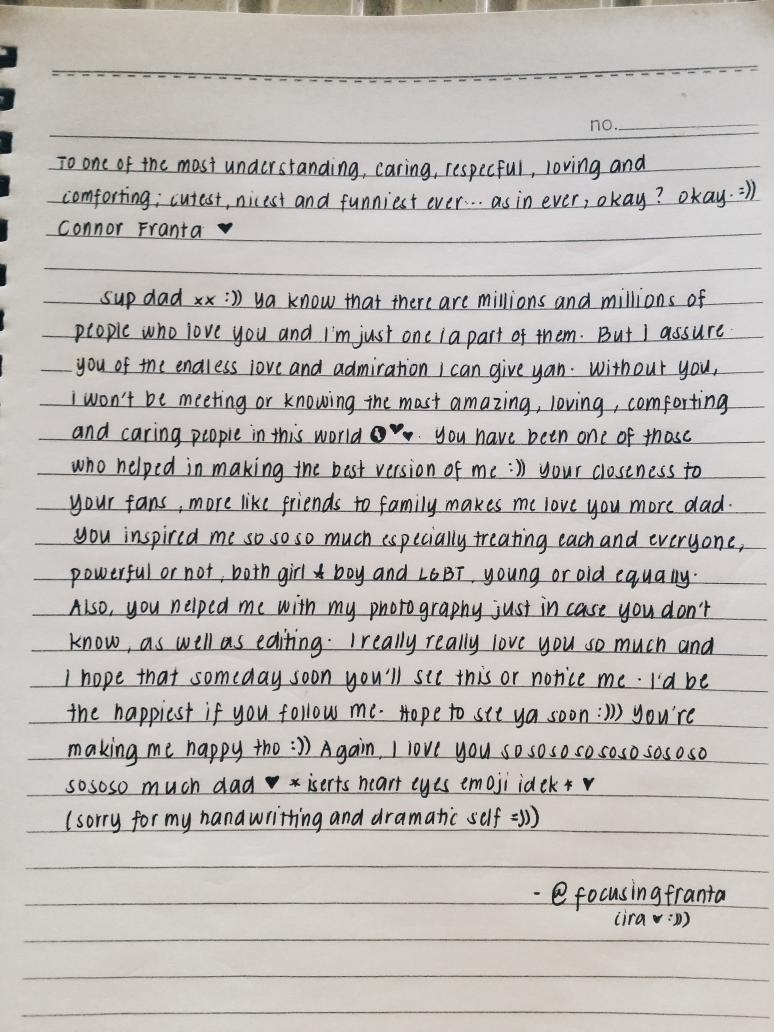 no.
To one of the most understanding, caring, respecful, loving and
comforting; cutest, nicest and funniest ever... as in ever, okay? okay. =))
Connor Franta ♥
sup dad xx :)) ya know that there are millions and millions of
people who love you and I'm just one / a part of them. But I assure
you of the endless love and admiration I can give yah. Without you,
I won't be meeting or knowing the most amazing, loving, comforting
and caring people in this world ♥♥. You have been one of those
who helped in making the best version of me :)) your closeness to
your fans, more like friends to family makes me love you more dad.
You inspired me so so so much especially treating each and everyone,
powerful or not, both girl & boy and LGBT, young or old equally.
Also, you helped me with my photography just in case you don't
know, as well as editing. I really really love you so much and
I hope that someday soon you'll see this or notice me. I'd be
the happiest if you follow me. Hope to see ya soon :))) You're
making me happy tho :)) Again, I love you so so so so so so so so so
sososo much dad ♥ *iserts heart eyes emoji idek* ♥
(sorry for my handwritting and dramatic self =)))
- @focusingfranta
(ira ♥ :)))